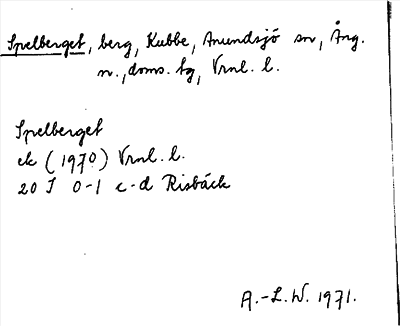 Spelberget, berg, Kubbe, Anundsjö sn, Ång.
n., doms. tg, Vrnl. l.
Spelberget
ek (1970) Vrnl. l.
20 I 0-1 c-d Risbäck
A.-L.W. 1971.